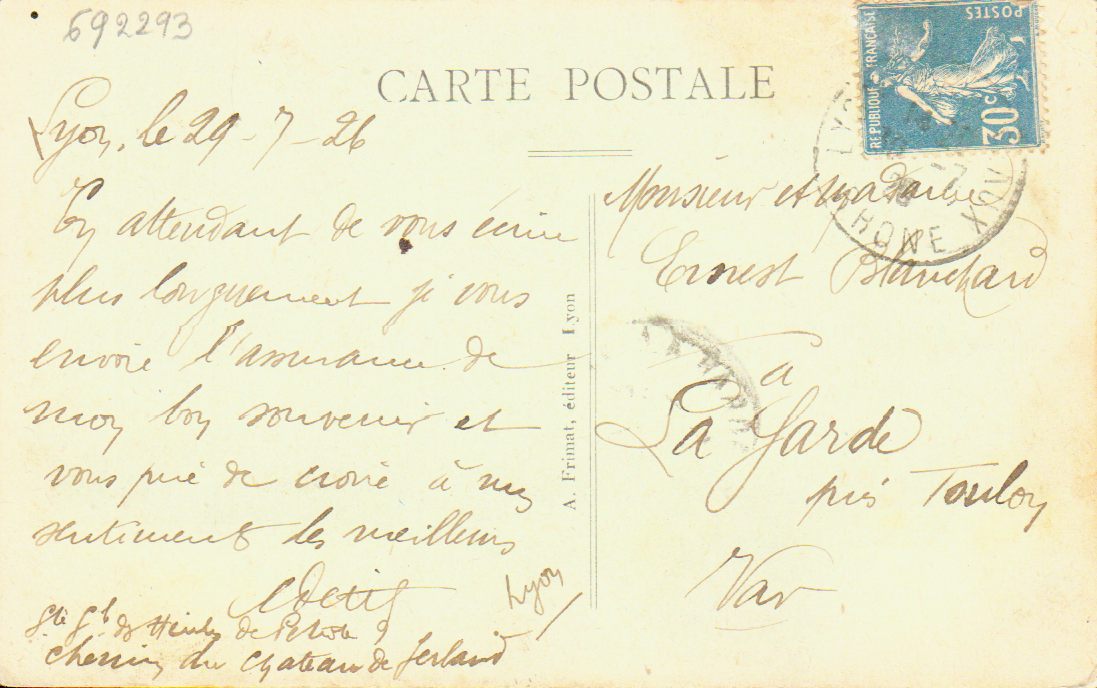 692293
CARTE POSTALE
POSTES
REPUBLIQUE FRANÇAISE
30c
RHONE
Lyon, le 29-7-26
En attendant de vous écrire
plus longuement je vous
envoie l'assurance de
mon bon souvenir et
vous prie de croire à mes
sentiments les meilleurs
Petit
Sté Gle de Huiles de Pétrole
chemin du chateau de Gerland
Lyon
A. Frimat, éditeur Lyon
Monsieur et Madame
Ernest Blanchard
à
La Garde
près Toulon
Var